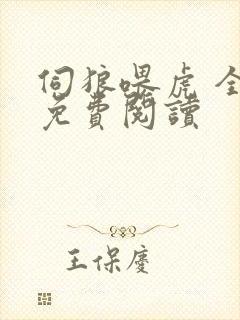 伺狼喂虎 全
免費閱讀
王保慶